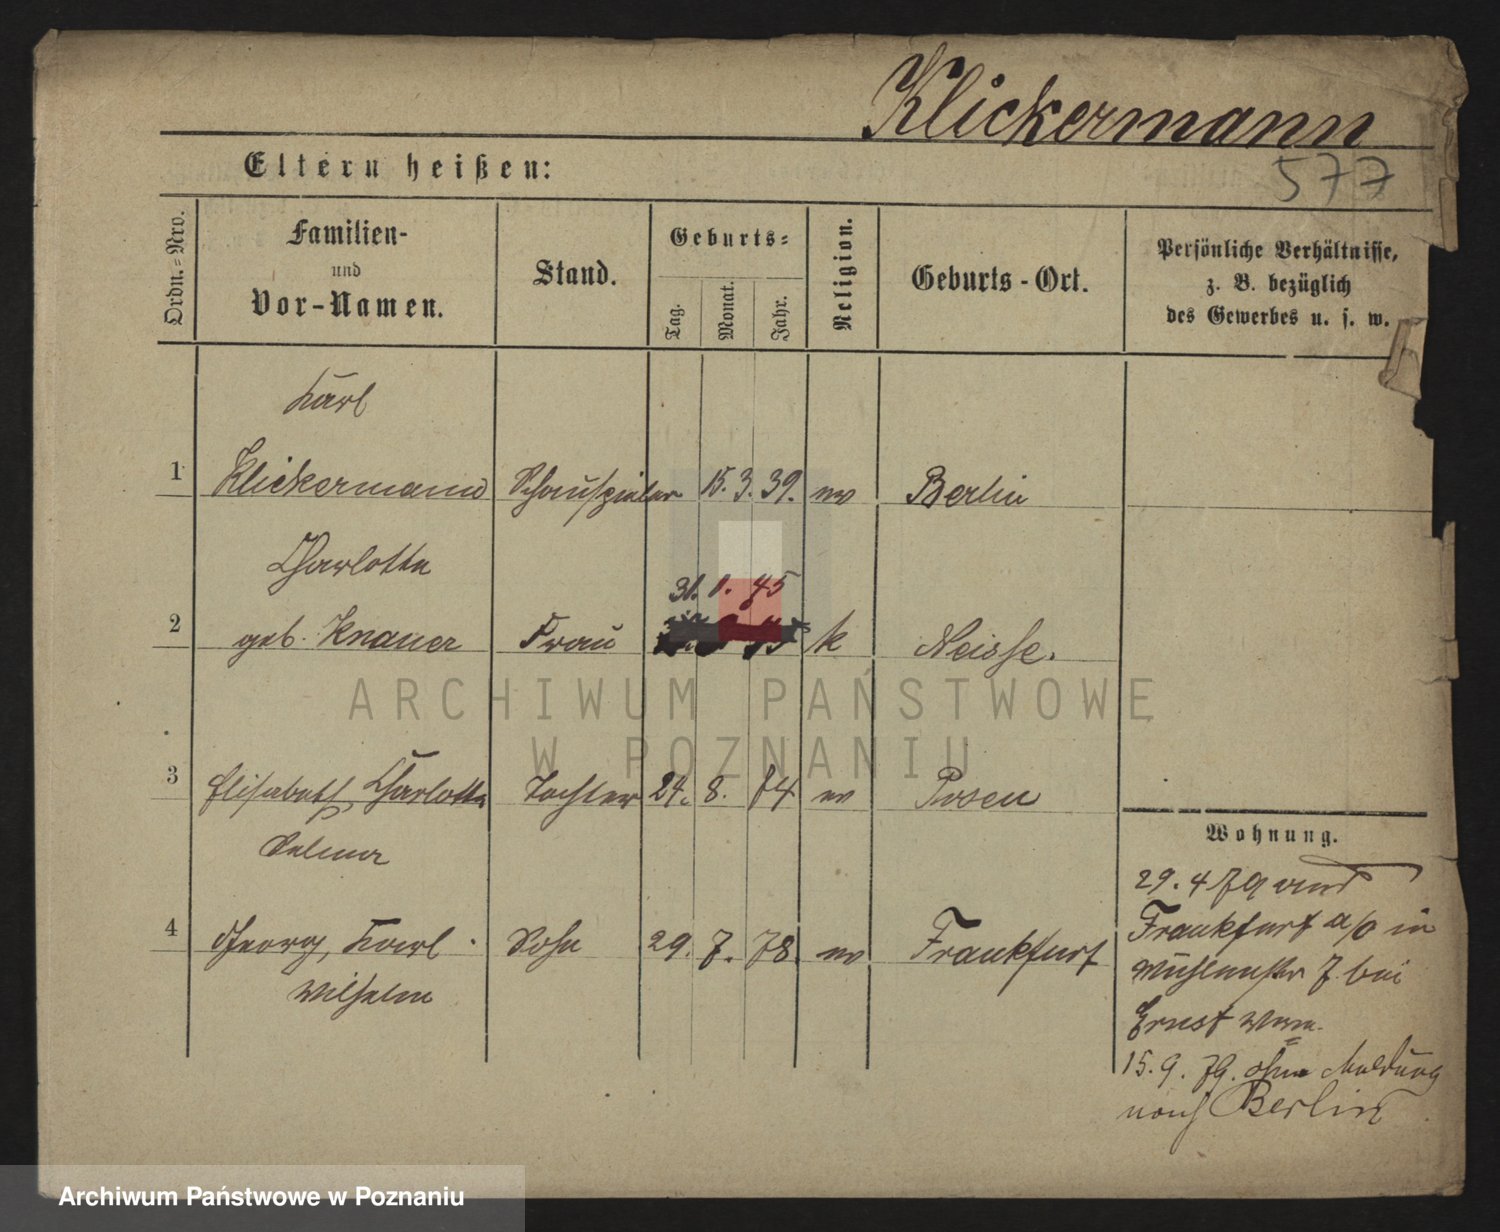 Klickermann
577
Eltern heißen:
Ordn.-Nro.
Familien-
und
Vor-Namen.
Stand.
Geburts-
Tag.
Monat.
Jahr.
Religion.
Geburts-Ort.
Persönliche Verhältnisse,
z. B. bezüglich
des Gewerbes u. s. w.
Karl
1 Klickermann Schauspieler 15. 3. 39. ev Berlin
Charlotte
31. 1. 45
2 geb. Knauer Frau k Neisse.
ARCHIWUM PAŃSTWOWE
W POZNANIU
3 Elisabeth Charlotte Tochter 24. 8. 74 ev Posen
Selma
Wohnung.
29. 4 79 aus
4 Georg, Karl Sohn 29. 7. 78. ev Frankfurt
Frankfurt a/O in
Wilhelm
7 bei
Ernst
15. 9. 79. ohne Meldung
nach Berlin
Archiwum Państwowe w Poznaniu